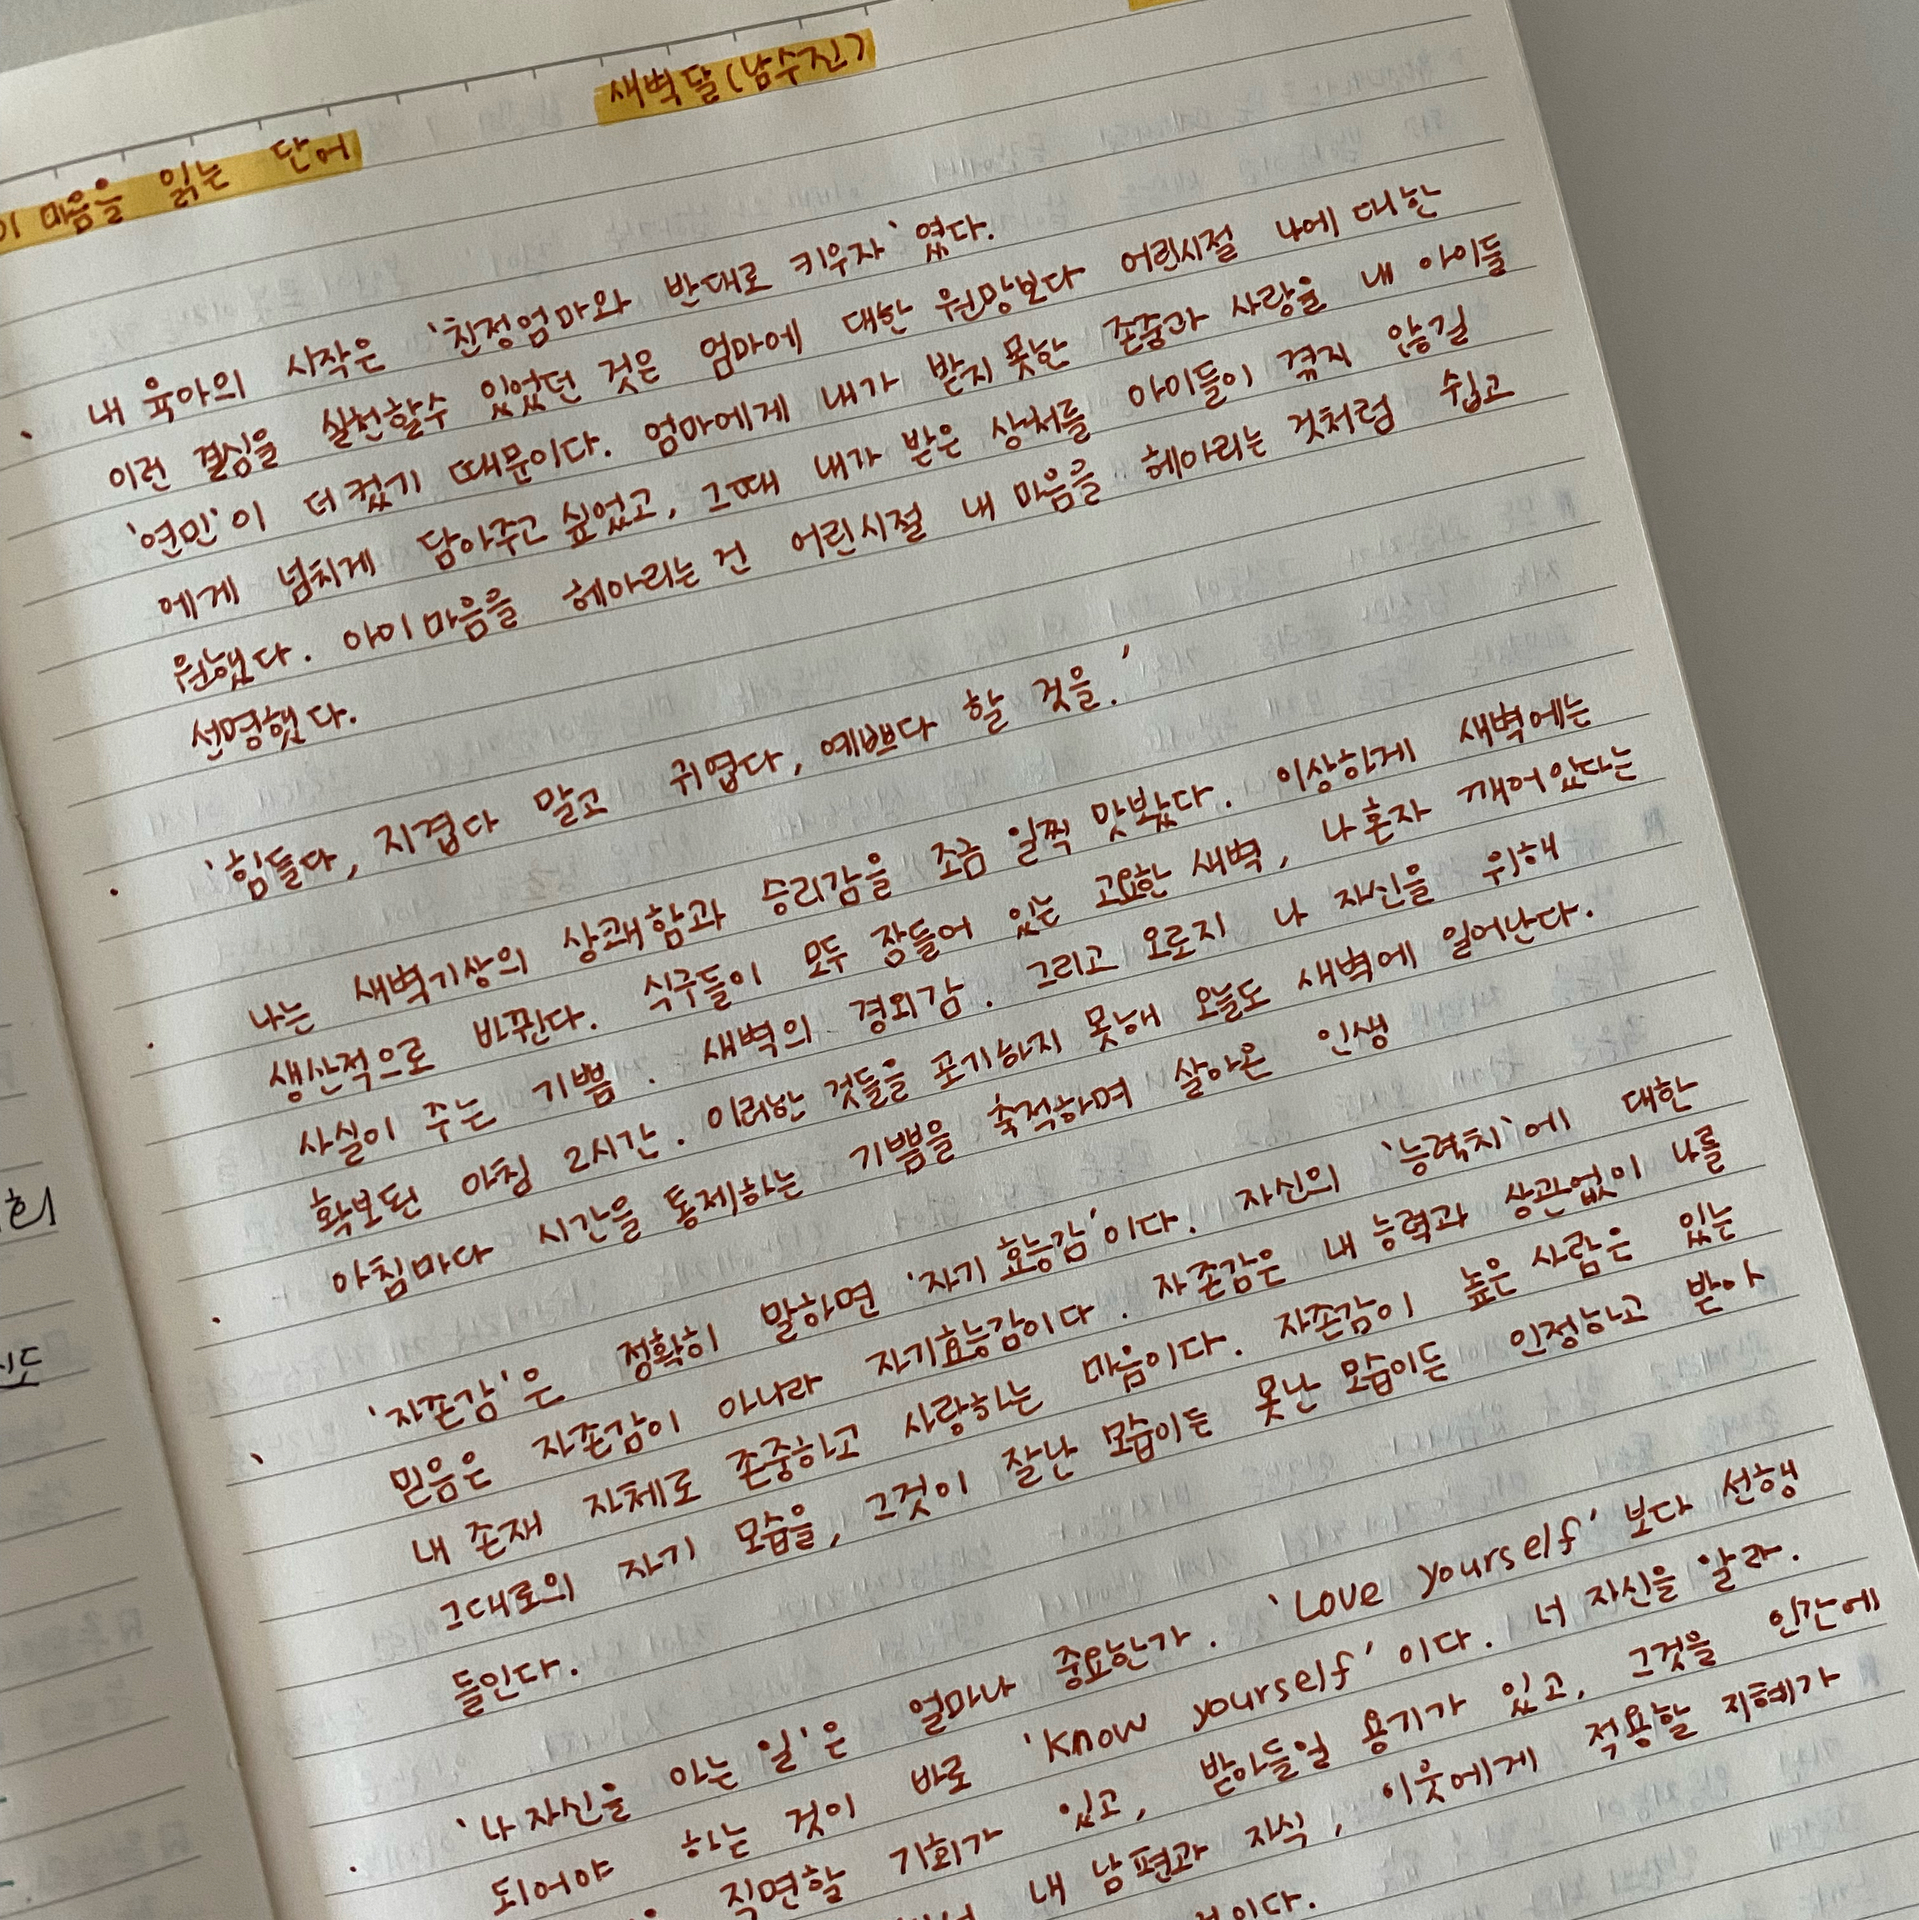 이 마음을 읽는 단어 새벽달(남수진)
· 내 육아의 시작은 '친정엄마와 반대로 키우자'였다.
이런 결심을 실천할수 있었던 것은 엄마에 대한 원망보다 어린시절 나에 대한
'연민'이 더 컸기 때문이다. 엄마에게 내가 받지 못한 존중과 사랑을 내 아이들
에게 넘치게 담아주고 싶었고, 그때 내가 받은 상처를 아이들이 겪지 않길
원했다. 아이 마음을 헤아리는 건 어린시절 내 마음을 헤아리는 것처럼 쉽고
선명했다.
· '힘들다, 지겹다 말고 귀엽다, 예쁘다 할 것을.'
· 나는 새벽기상의 상쾌함과 승리감을 조금 일찍 맛봤다. 이상하게 새벽에는
생산적으로 바뀐다. 식구들이 모두 잠들어 있는 고요한 새벽, 나 혼자 깨어있다는
사실이 주는 기쁨. 새벽의 경외감. 그리고 오로지 나 자신을 위해
확보된 아침 2시간. 이러한 것들을 포기하지 못해 오늘도 새벽에 일어난다.
· 아침마다 시간을 통제하는 기쁨을 축적하며 살아온 인생
· '자존감'은 정확히 말하면 '자기 효능감'이다. 자신의 '능력치'에 대한
믿음은 자존감이 아니라 자기효능감이다. 자존감은 내 능력과 상관없이 나를
내 존재 자체로 존중하고 사랑하는 마음이다. 자존감이 높은 사람은 있는
그대로의 자기 모습을, 그것이 잘난 모습이든 못난 모습이든 인정하고 받아
들인다.
· '나 자신을 아는 일'은 얼마나 중요한가. 'Love yourself' 보다 선행
되어야 하는 것이 바로 'Know yourself' 이다. 너 자신을 알라.
직면할 기회가 있고, 받아들일 용기가 있고, 그것을 인간에
내 남편과 자식, 이웃에게 적용할 지혜가
이다.
회